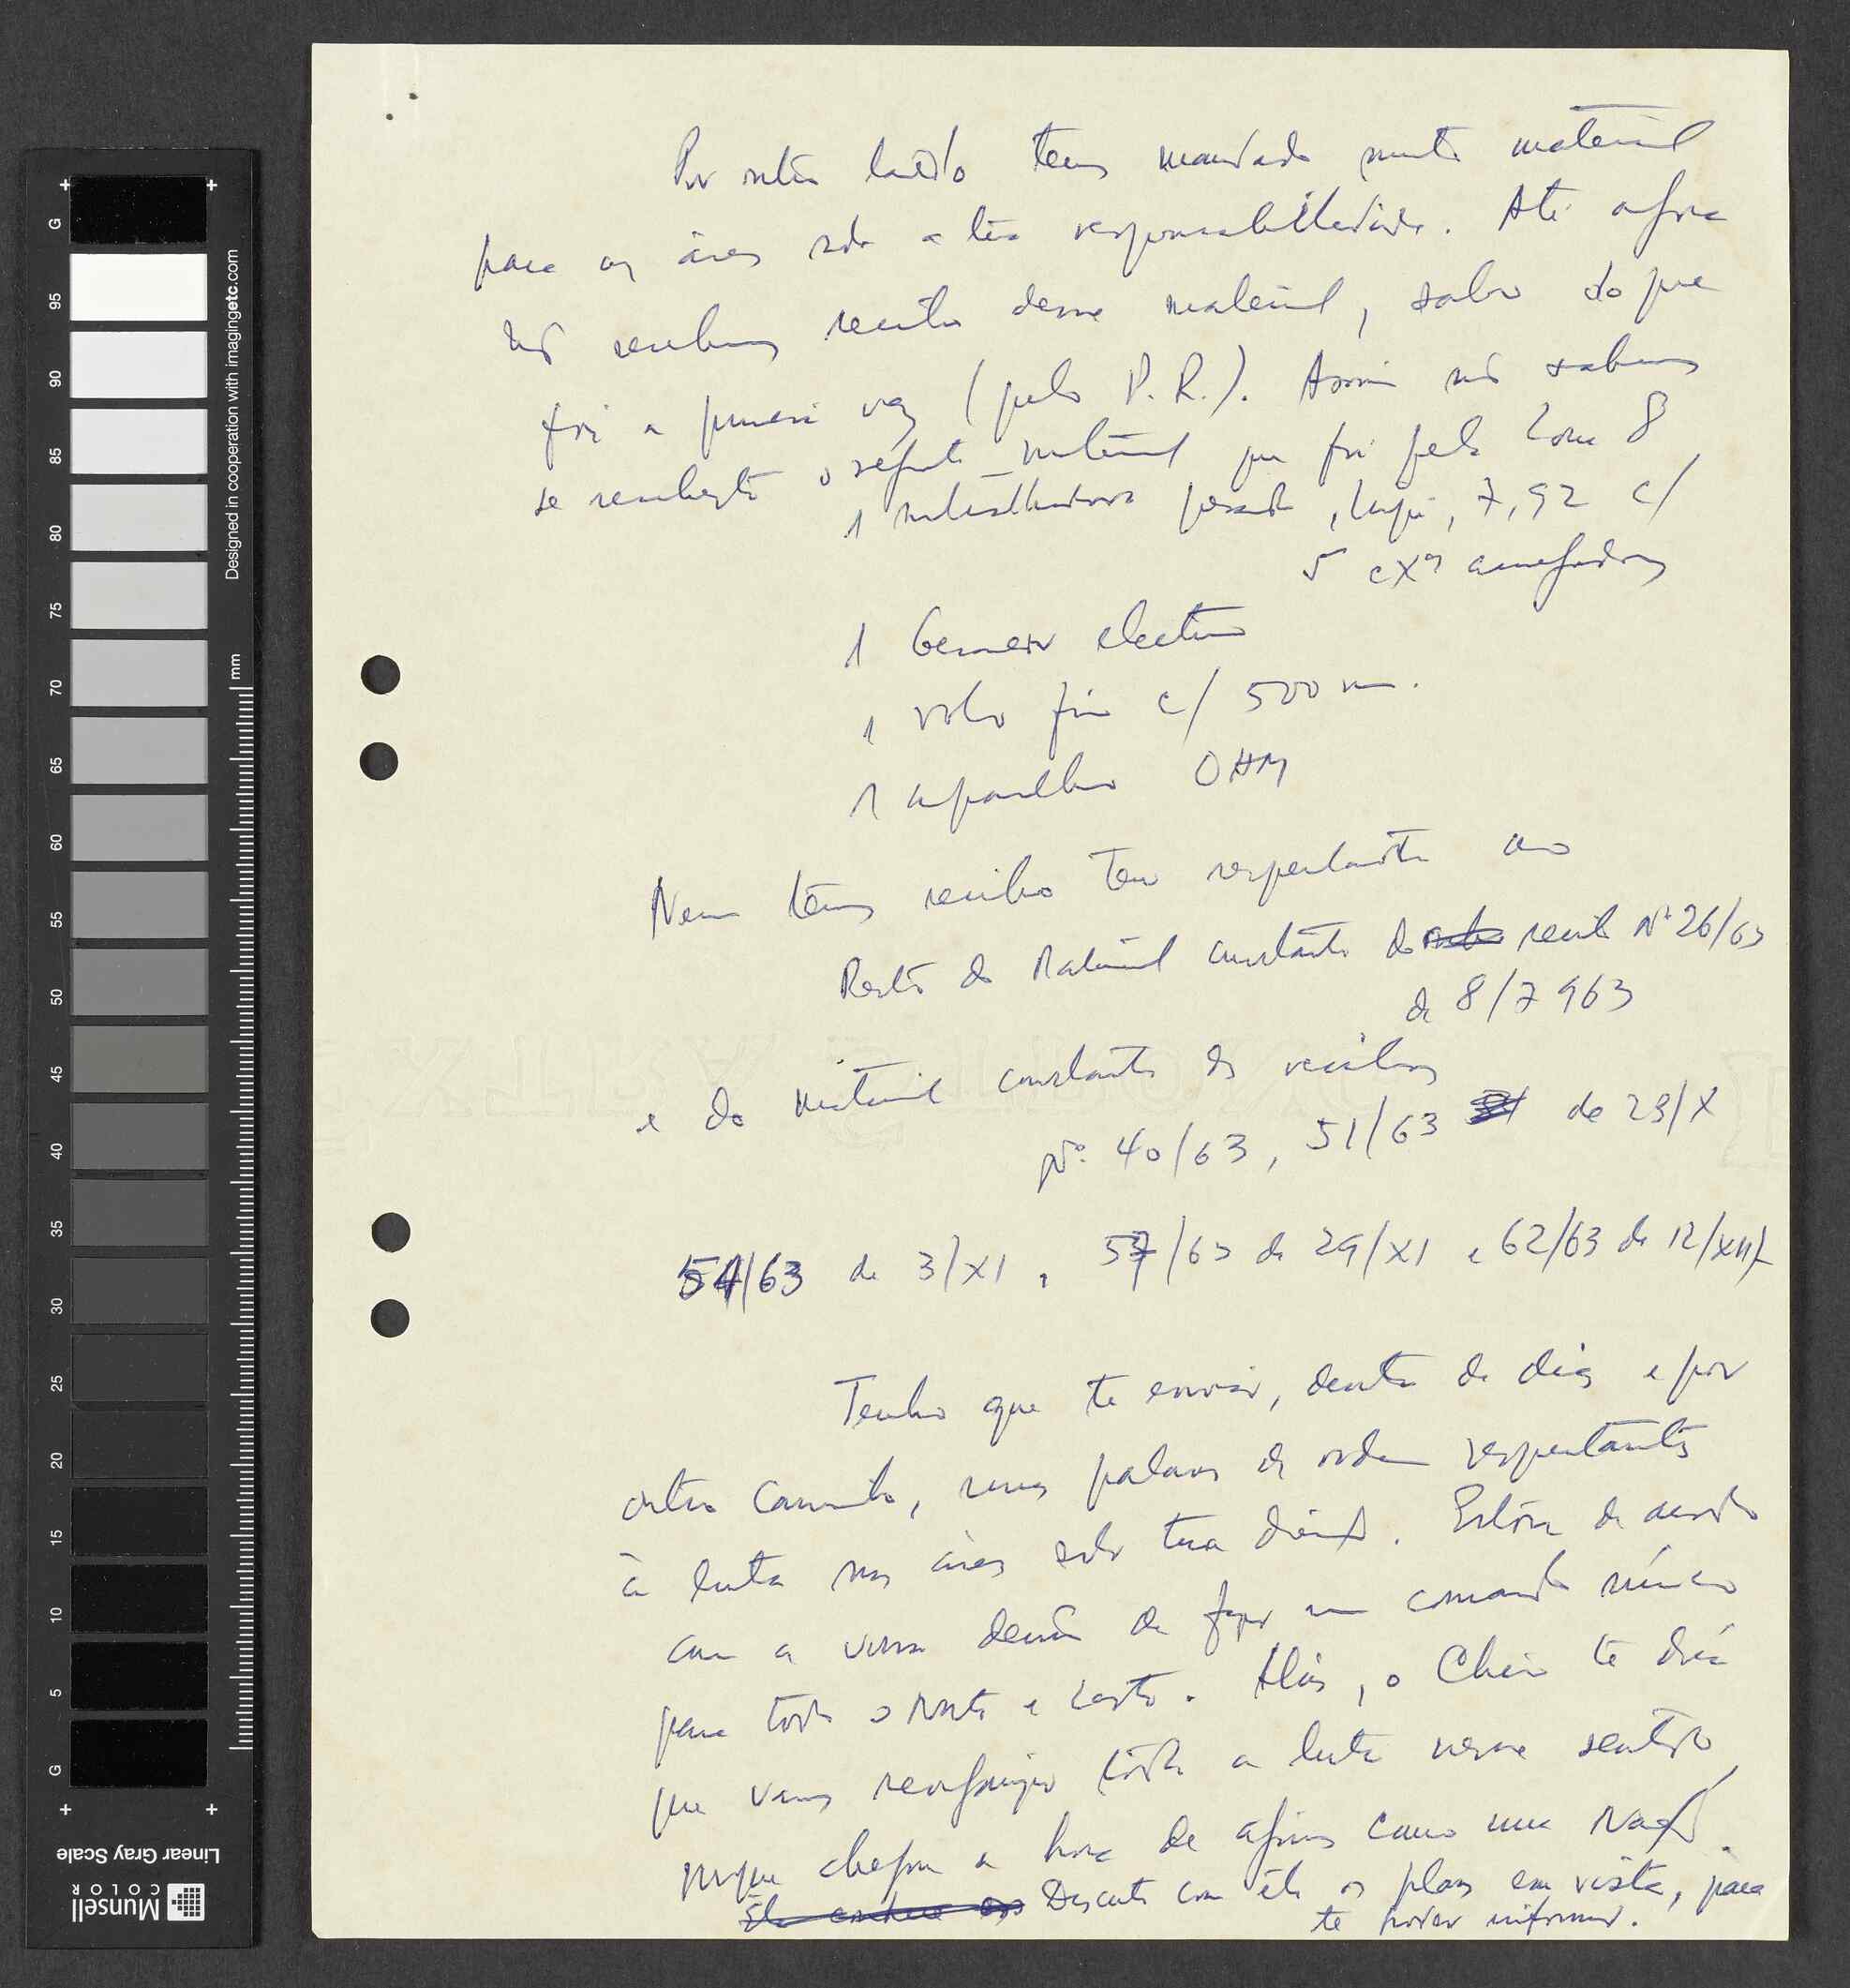 Por outro lado temos mandado muito material
para as áreas sob a tua responsabilidade. Até agora
não recebemos recibo desse material, salvo do que
foi a primeira vez (pelo P. R.). Assim não sabemos
se recebeste o seguinte material que foi pela Zona 8
1 metralhadora pesada, 7,92 c/
5 cxas carregadoras
1 Gerador electrico
1 rolo fio c/ 500 m.
1 aparelho OHM
Nem temos recibo teu respeitante ao
Resto do Material constante do recibo Nº 26/63
de 8/7 963
e do material constante dos recibos
Nº 40/63, 51/63 de 23/X
54/63 de 3/XI, 57/63 de 29/XI e 62/63 de 12/XII/
Tenho que te enviar, dentro de dias e por
outro caminho, umas palavras de ordem respeitantes
à luta nas áreas sob tua direcção. Estou de acordo
com a vossa decisão de fazer um comando único
para todo o Norte e Leste. Aliás, o Chico te dirá
que vamos reorganizar toda a luta nesse sentido,
porque chegou a hora de agirmos como uma Nação.
Discuti com êle os planos em vista, para
te poder informar.
Designed in cooperation with imagingetc.com
mm
G 95 90 85 80 75 70 65 60 55 50 45 40 35 30 25 20 15 10 5 G
Linear Gray Scale
Munsell
COLOR